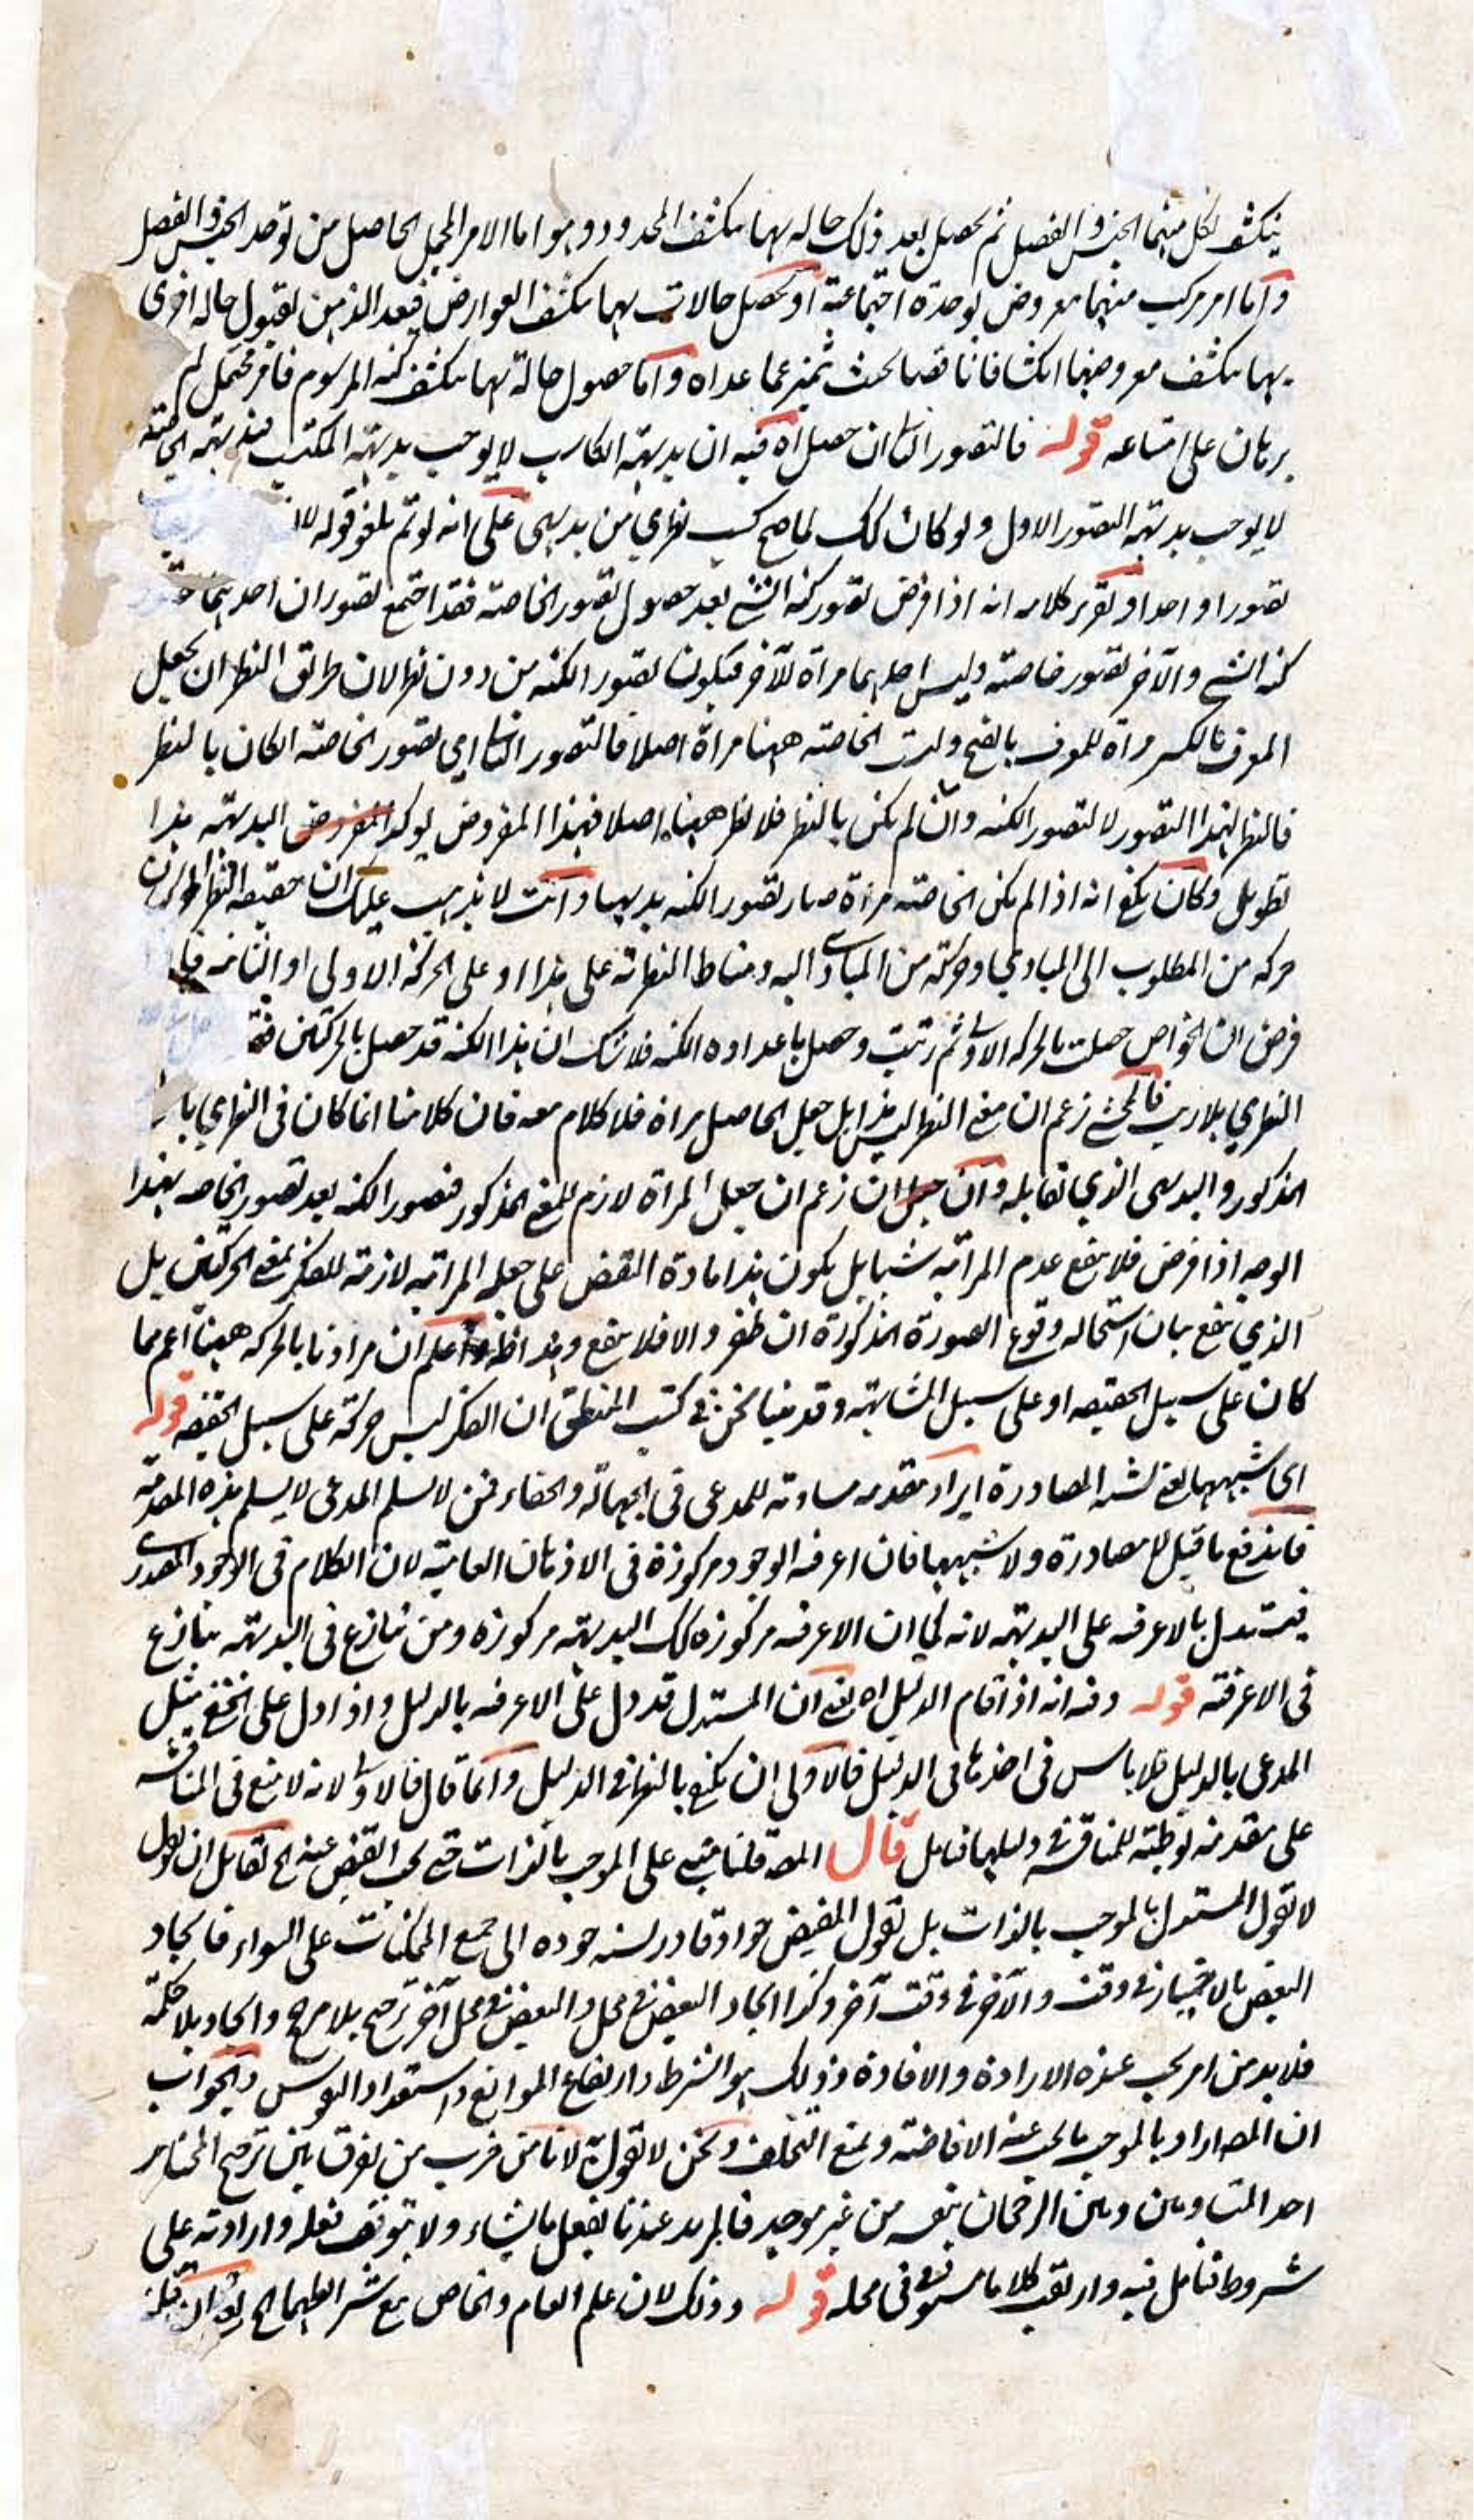 ينكشف بكل منهما الجنس والفصل ثم يحصل بعد ذلك حاله بها ينكشف المحدود وهو اما الامر المجمل الحاصل من توحد الجنس والفصل
واما امر مركب منهما معروض لوحدة اجتماعية او تحصل حالات بها ينكشف العوارض فيعد الذهن لقبول حاله اخرى
بها ينكشف معروضها انكشافا ناقصا بحيث تميز عما عداه واما حصول حالة بها ينكشف كنه المرسوم فامر محتمل لم
برهان على امتناعه قوله فالتصور الثانى ان حصل اه فيه ان بديهة الكاسب لا يوجب بديهة المكتسب فبديهة
لا يوجب بديهة التصور الاول ولو كان كك لما صح كسب نظري من بديهى على انه لو تم يلغو قوله لان
تصورا واحدا وتقرير كلامه انه اذا فرض تصور كنه الشئ بعد حصول تصور الخاصة فقد اجتمع تصوران احدهما
كنه الشئ والآخر تصور خاصته وليس احدهما مرآة للآخر فيكون تصور الكنه من دون نظر لان طريق النظر ان يجعل
المعرف بالكسر مرآة للمعرف بالفتح وليست الخاصة ههنا مرآة اصلا فالتصور الثانى اي تصور الخاصة ان كان بالنظر
فالنظر لهذا التصور لا لتصور الكنه وان لم يكن بالنظر فلا نظر ههنا اصلا فهذا المفروض يوكد البديهة هذا
تطويل وكان يكفى انه اذا لم يكن الخاصة مرآة صار تصور الكنه بديهيا وانت لا يذهب عليك ان حقيقة النظر اما
حركه من المطلوب الى المبادي او حركة من المبادى اليه ومناط النظرية على هذا او على الحركة الاولى او الثانية فاذا
فرض ان الخواص حصلت بالحركه الاولى ثم رتبت وحصل باعداده الكنه فلا شك ان هذا الكنه قد حصل بالحركتين فهو
النظري بلا ريب فالمحشى زعم ان معنى النظر ليس هذا بل جعل الحاصل مراة فلا كلام معه فان كلامنا انما كان فى النظري بالمعنى
المذكور والبديهى الذي تقابله وان زعم ان جعل المراة لازم للمعنى المذكور فتصور الكنه بعد تصور الخاصه بهذا
الوجه اذا فرض فلا ينفع عدم المراتية شيئا بل يكون هذا مادة النقض على جعله المراتية لازمة للفكر بمعنى الحركتين بل
الذي ينفع بيان استحاله وقوع الصورة المذكورة ان ظفر والا فلا ينفع وهذا ظاهر واعلم ان مرادنا بالحركه ههنا اعم مما
كان على سبيل الحقيقه او على سبيل المشابهة وقد بينا نحن فى كتب المنطق ان الفكر ليس حركة على سبيل الحقيقه قوله
اى شبيهها يعنى لشبه المصادرة ايراد مقدمه مساوية للمدعى فى الجهالة والخفاء فمن لا يسلم المدعى لا يسلم هذه المقدمة
فاندفع ما قيل لا مصادرة ولا شبيهها فان اعرفية الوجود مركوزة فى الاذهان العامية لان الكلام فى الوجود المصدرى
فيستدل بالاعرفيه على البديهة لانه كما ان الاعرفيه مركوزه كك البديهة مركوزه ومن نازع فى البديهة ينازع
فى الاعرفية قوله وفيه انه اذ اقام الدليل اه يعنى ان المستدل قد دل على الاعرفيه بالدليل واذا دل على الخفى مثل
المدعى بالدليل فلا باس فى اخذها فى الدليل فالاولى ان يكتفى بالنظر فى الدليل وانما قال فالاولى لانه لا منع فى المناقشه
على مقدمة توطئة للمناقشه فى دليلها فتامل قال المص قلنا مبنى على الموجب بالذات حتى يجب الفيض عنه الخ لقائل ان يقول
لا نقول المستدل بالموجب بالذات بل نقول المفيض جواد قادر نسبة جوده الى جميع الممكنات على السواء فايجاد
البعض بالاختيار فى وقت والآخر فى وقت آخر وكذا ايجاد البعض فى محل والبعض فى محل آخر ترجيح بلا مرجح وايجاد بلا حكمة
فلا بد من امر يجب عنده الارادة والافادة وذلك هو الشرط وارتفاع الموانع واستعداد النفوس والجواب
ان المص اراد بالموجب ما يجب عنه الافاضة ويمنع التخلف ونحن لا نقول به لانا من فرب من نفرق بين ترجيح المختار
احد المتساويين وبين الرجحان بنفسه من غير موجد فالمريد عندنا يفعل ما يشاء ولا يتوقف فعله وارادته على
شروط فتامل فيه وارتقب كلاما مستوفى فى محله قوله وذلك لان علم العام والخاص مع شرائطهما الخ